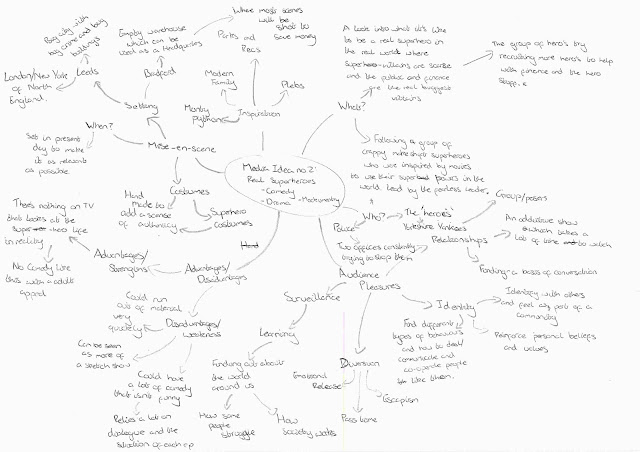 Media Idea no.2:
Real Superheroes
- Comedy
- Drama
- Mockumentary
What?
A look into what it's like
to be a real superhero in
the real world where
super-villains are scarce
and the public and finance
are the real biggest
villains
The group of hero's try
recruiting more hero's to help
with finance and the hero
stuff.
Following a group of
crappy superheroes
who were inspired by movies
to use their powers in the
world. Lead by the fearless leader.
Who?
The 'heroes'
Yorkshire Yankees
Police
Two officers constantly
trying to stop them
Audience
Pleasures
Relationships
Group/peers
An addictive show
which takes a
lot of time to watch
Finding a basis of conversation
Identity
Identify with others
and feel part of a
community
Reinforce personal beliefs
and values
Find different
types of behaviours
and how to deal/
communicate and
co-operate people
like them.
Diversion
Emotional
Release
Escapism
Pass time
Surveillance
Learning
Finding out about
the world
around us
How some
people
struggle
How
society works
Hard
Advantages/
Disadvantages
Advantages/
Strengths
Theres nothing on TV
that looks at the
super-hero life
in reality
No Comedy like
this with a adult
appeal
Disadvantages/
weakness
Could run
out of material
very
quickly
Can be seen
as more of
a sketch show
Could have
a lot of comedy
that isn't funny
Relies a lot on
dialogue and the
situation of each ep
Mise-en-scene
Costumes
Hand
made to
add a sense
of authenticity
Superhero
costumes
When?
Set in present
day to make
it as relevant
as possible.
Setting
Leeds
London/New York
of North
England.
Big city with
big crime and big
buildings
Bradford
Empty warehouse
which can be
used as a headquarters
Where most scenes
will be
shot to
save money
Inspiration
Parks and
Recs
Modern
Family
Monty
python
Plebs